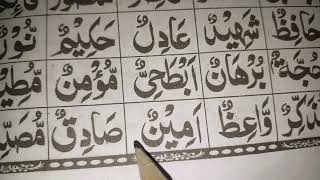 حَافِظٌ شَهِيْدٌ عَادِلٌ حَكِيْمٌ نُوْرٌ
حُجَّةٌ بُرْهَانٌ اَبْطَحِىٌّ مُؤْمِنٌ
وَاعِظٌ اَمِيْنٌ صَادِقٌ